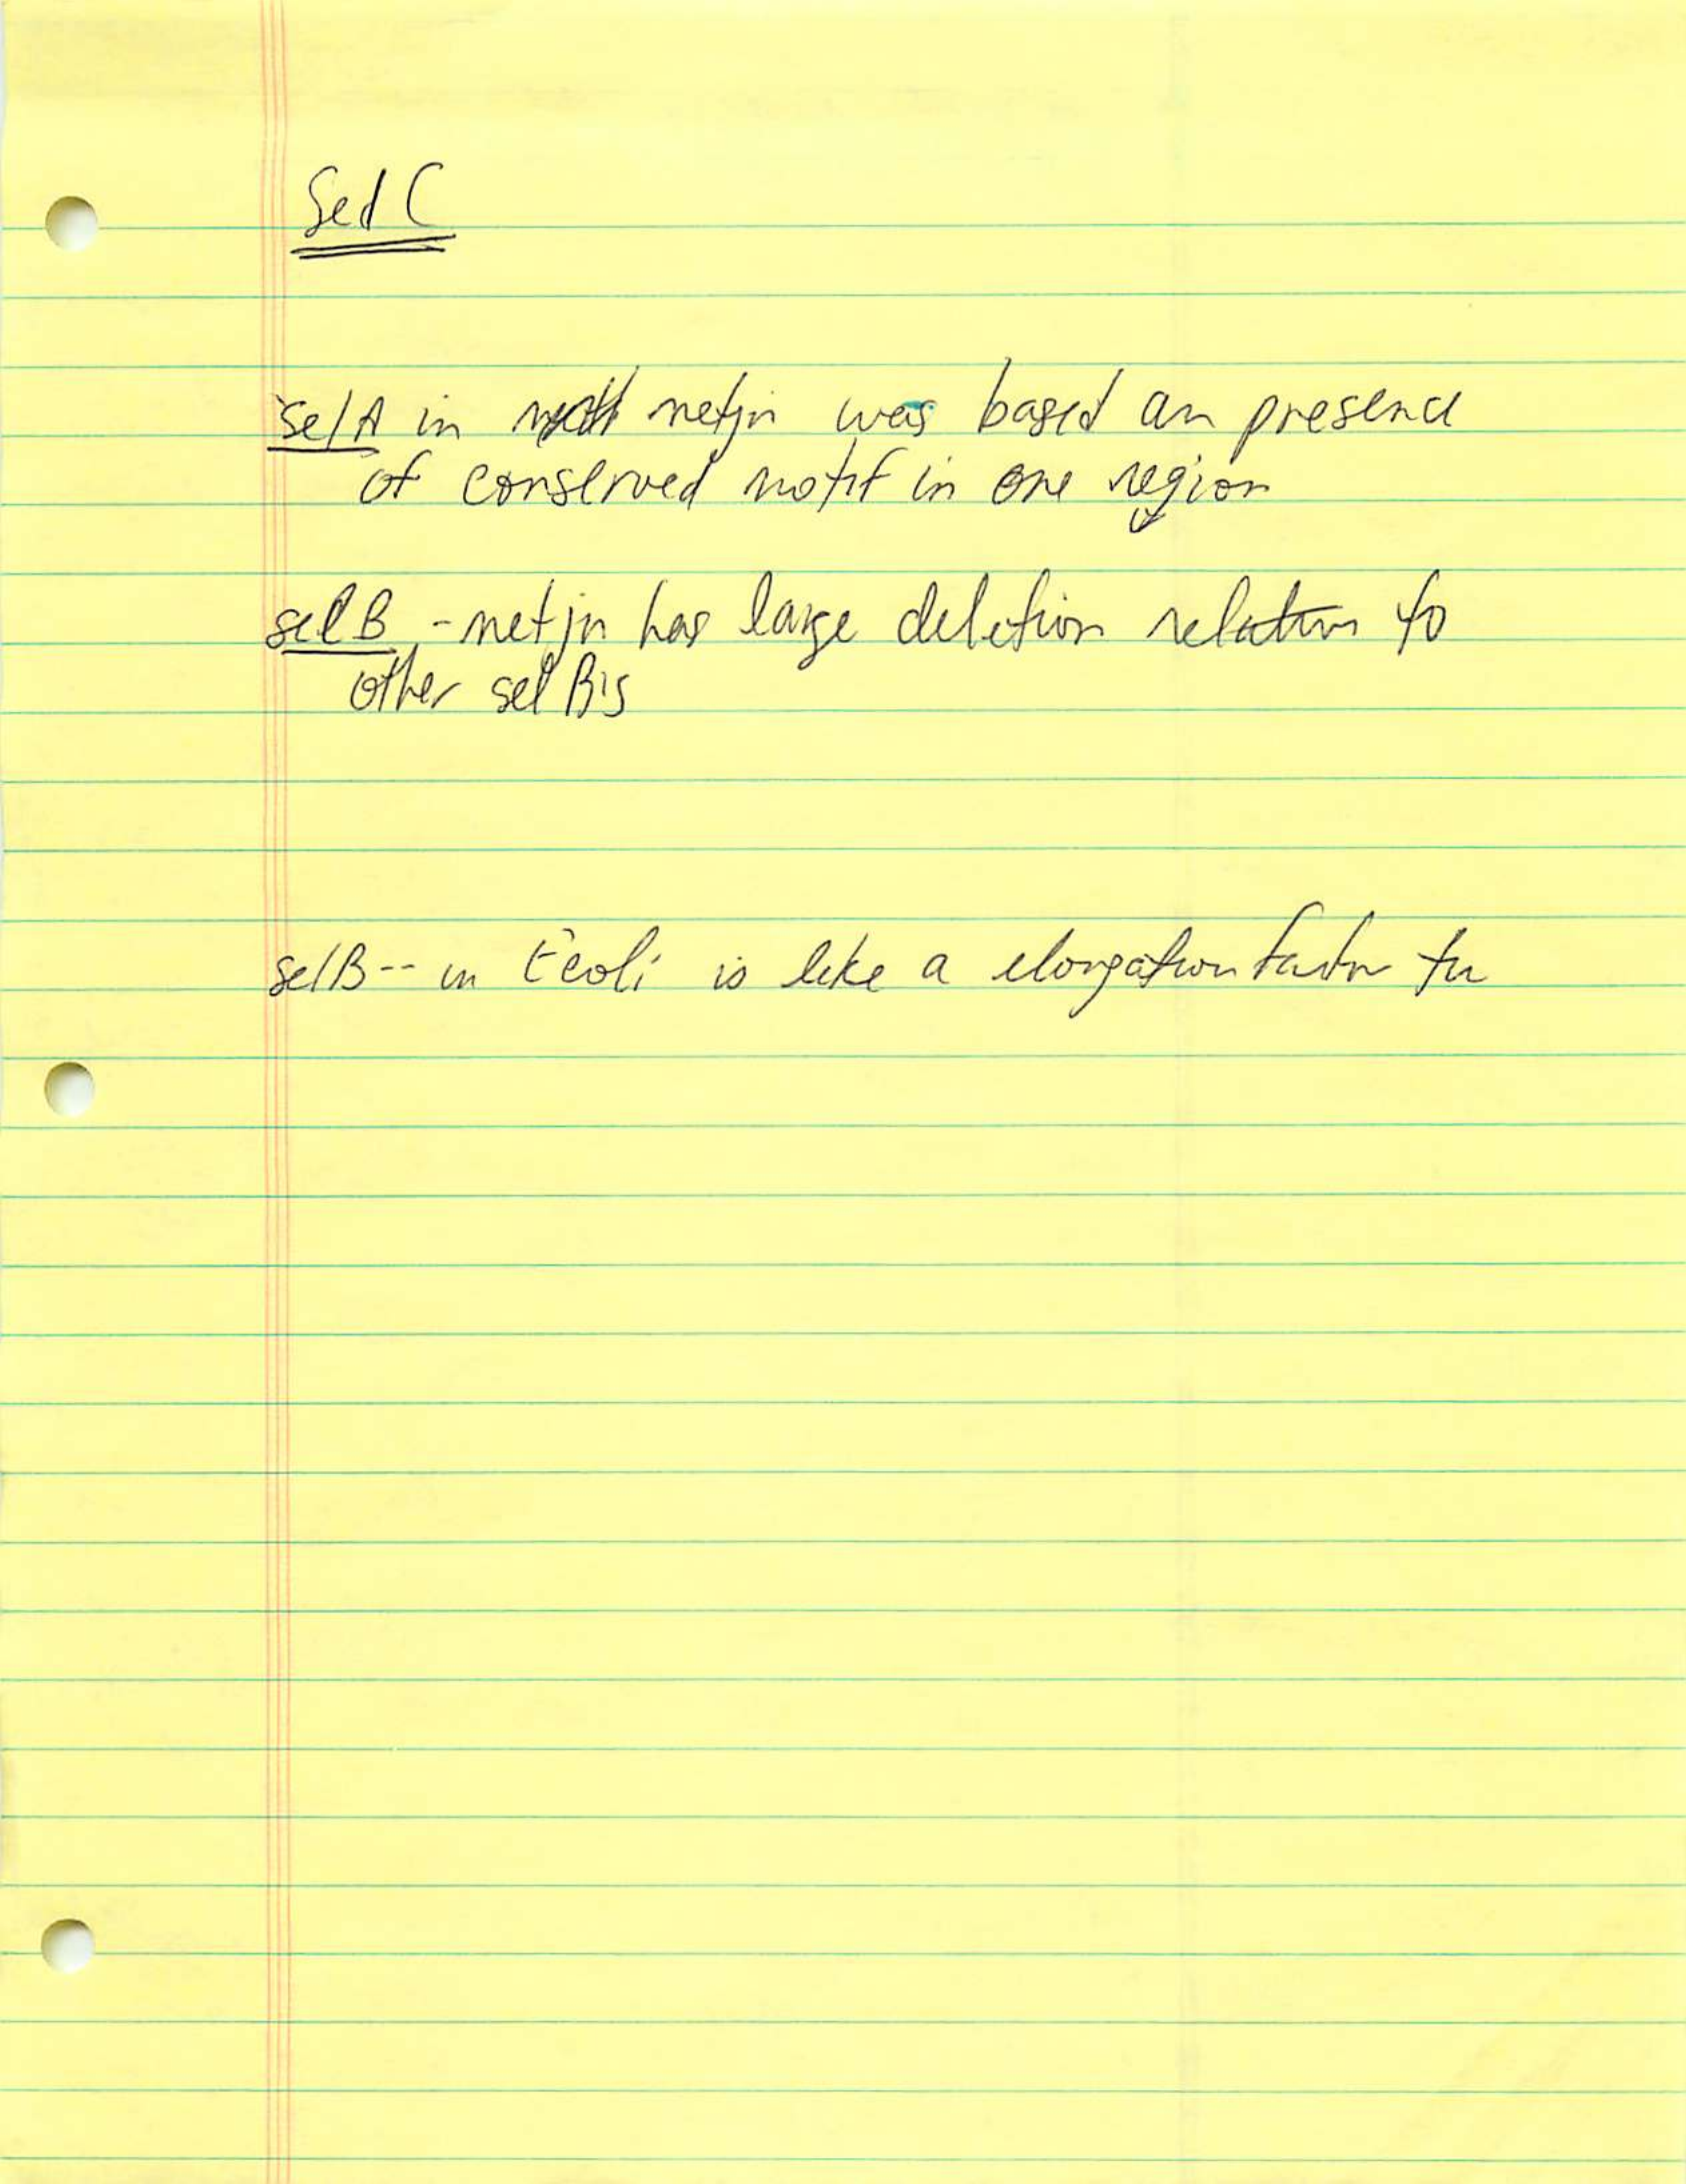 Sel C
selA in metjn was based on presence
of conserved motif in one region
selB - metjn has large deletion relative to
other sel B's
selB -- in Ecoli is like a elongation factor tu